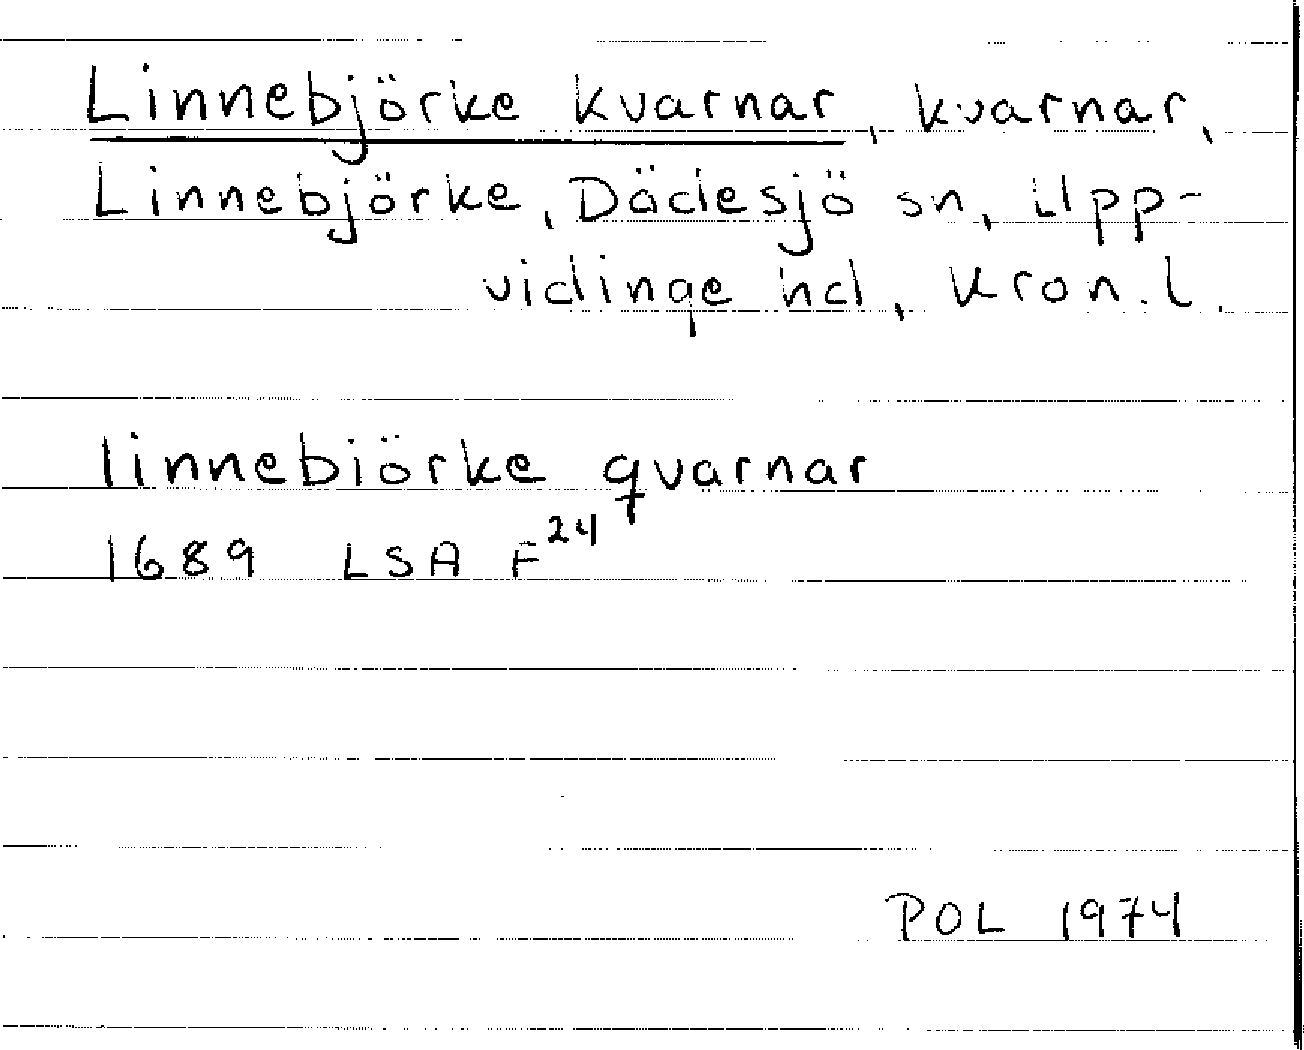 Linnebjörke kvarnar, kvarnar,
Linnebjörke, Dädesjö sn, Upp-
vidinge hd, Kron. l.
linnebiörke qvarnar
1689 LSA F²⁴
POL 1974